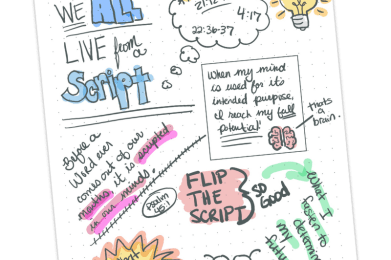 WE ALL
LIVE from a
Script
4:17
22:36-37
When my mind
is used for its
intended purpose,
I reach my full
potential"
thats
a
brain.
Before a
Word ever
comes out of our
mouths it is scripted
in our minds.
Psalm
45:1
FLIP
THE
SCRIPT
SO
GOOD
what I
listen to